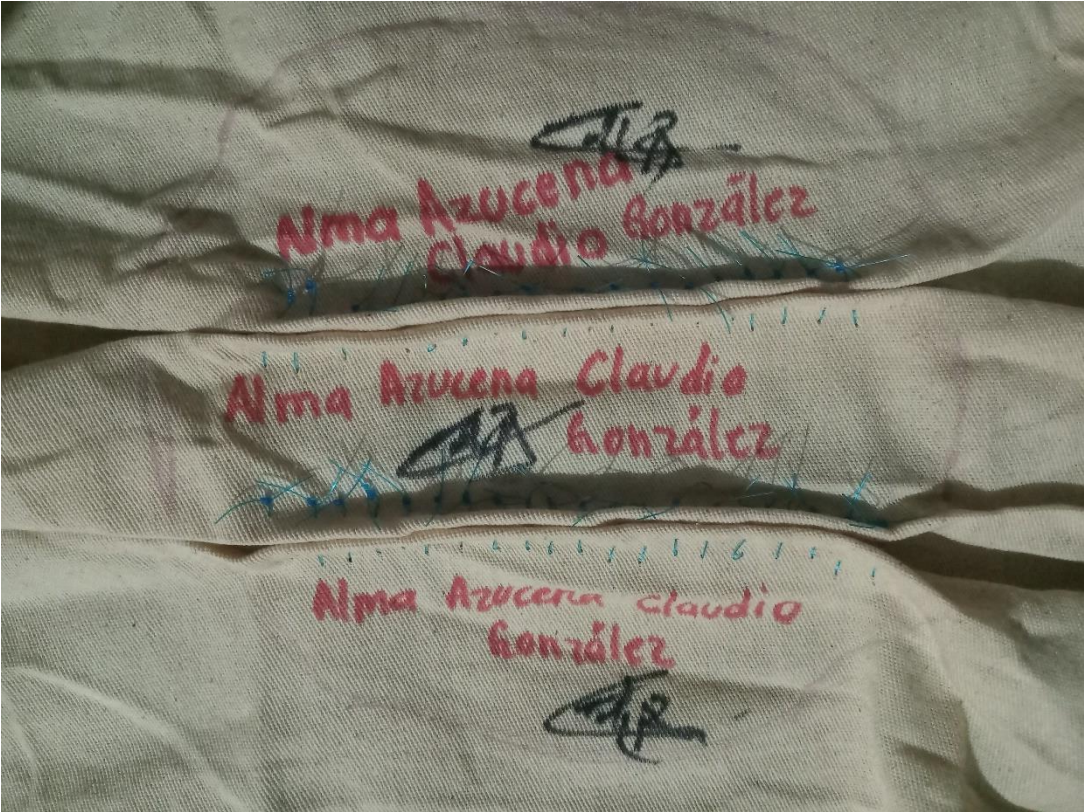 Alma Azucena
Claudio González
Alma Azucena Claudio
González
Alma Azucena claudio
González